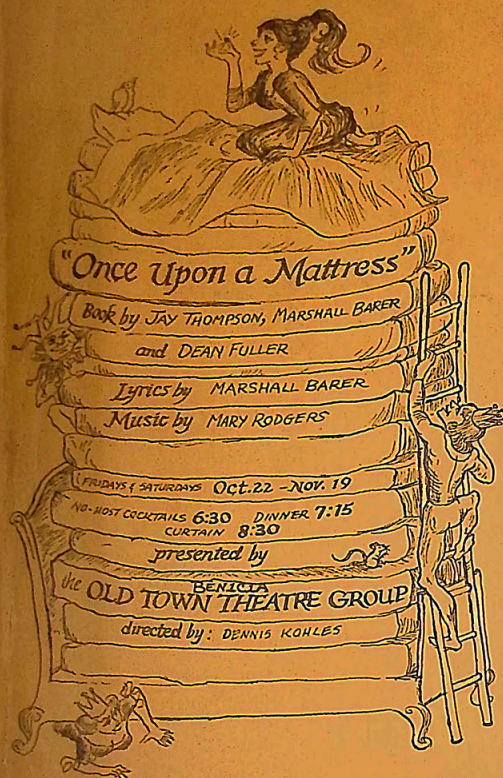 "Once Upon a Mattress"
Book by JAY THOMPSON, MARSHALL BARER
and DEAN FULLER
Lyrics by MARSHALL BARER
Music by MARY RODGERS
FRIDAYS & SATURDAYS Oct. 22 - NOV. 19
NO-HOST COCKTAILS 6:30 DINNER 7:15
CURTAIN 8:30
presented by
BENICIA
the OLD TOWN THEATRE GROUP
directed by: DENNIS KOHLES